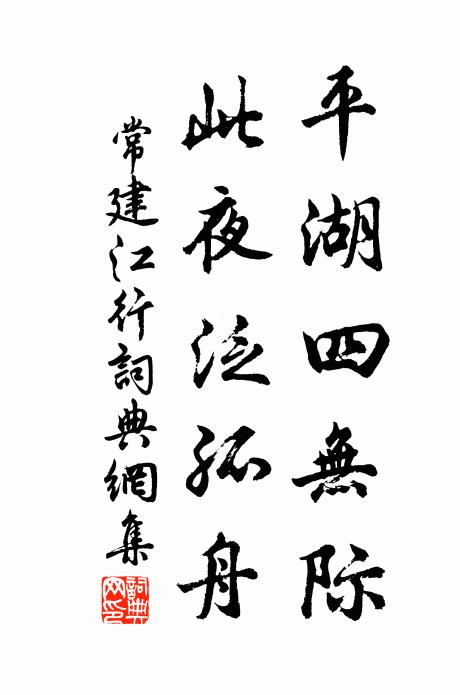 平湖四無际
此夜泛孤舟
常建江行詞典網集
詞典网印